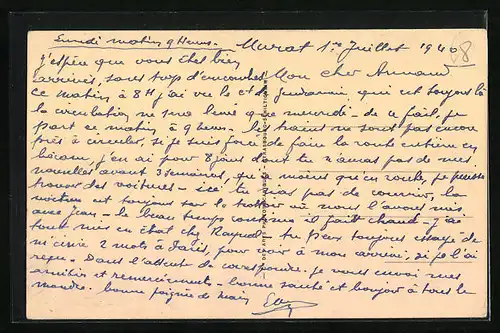 Lundi matin 9 heures. - Murat 1er Juillet 1940
J'espère que vous êtes bien
arrivés, sans trop d'encombres. Mon cher Armand
Ce matin à 8H j'ai vu le Ct de Gendarmerie, qui est toujours là
la circulation ne sera levée que mercredi - de ce fait, je
pars ce matin à 9 heures. Les trains ne sont pas encore
prêts à circuler, si je suis forcé de faire la route entière en
bécane, j'en ai pour 8 jours dont tu n'auras pas de mes
nouvelles avant 3 semaines, à moins qu'en route, je puisse
trouver des voitures - ici tu n'as pas de courrier, la
voiture est toujours sur le trottoir où nous l'avons mis
avec Jean - le beau temps continue il fait chaud - J'ai
tout mis en état chez Raynal - tu peux toujours essayer de
m'écrire 2 mots à Paris, pour voir à mon arrivée si je l'ai
reçu. Dans l'attente de correspondre je vous envoie mes
amitiés et remerciements - bonne santé et bonjour à tous le
monde. bonne poignée de main
68